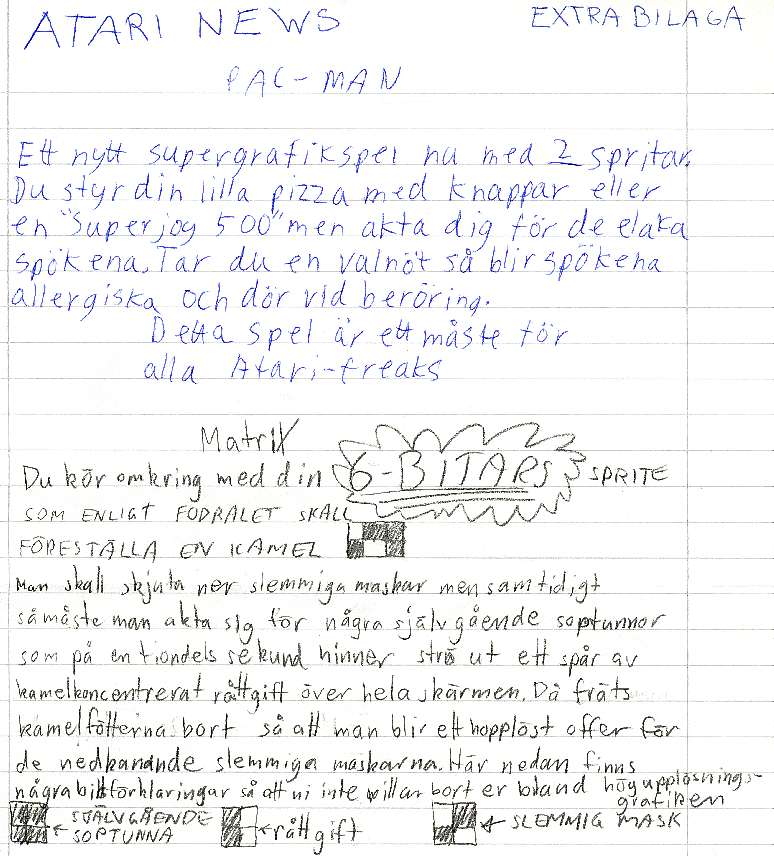 ATARI NEWS EXTRA BILAGA
PAC-MAN
Ett nytt supergrafikspel nu med 2 spritar.
Du styr din lilla pizza med knappar eller
en "Superjoy 500" men akta dig för de elaka
spökena. Tar du en valnöt så blir spökena
allergiska och dör vid beröring.
Detta spel är ett måste för
alla Atari-freaks
Matrix
Du kör omkring med din 6-BITARS SPRITE
SOM ENLIGT FODRALET SKALL
FÖRESTÄLLA EN KAMEL
Man skall skjuta ner slemmiga maskar men samtidigt
så måste man akta sig för några självgående soptunnor
som på en tiondels sekund hinner strö ut ett spår av
kamelkoncentrerat råttgift över hela skärmen. Då fräts
kamelfötterna bort så att man blir ett hopplöst offer för
de nedkanande slemmiga maskarna. Här nedan finns
några bildförklaringar så att ni inte villar bort er bland högupplösnings-
grafiken
SJÄLVGÅENDE SOPTUNNA
råttgift
SLEMMIG MASK